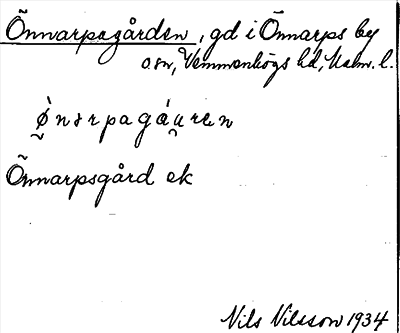 Önnarpagården, gd i Önnarps by
o. sn, Vemmenhögs hd, Malm. l.
Önnarpsgård ek
Nils Nilsson 1934